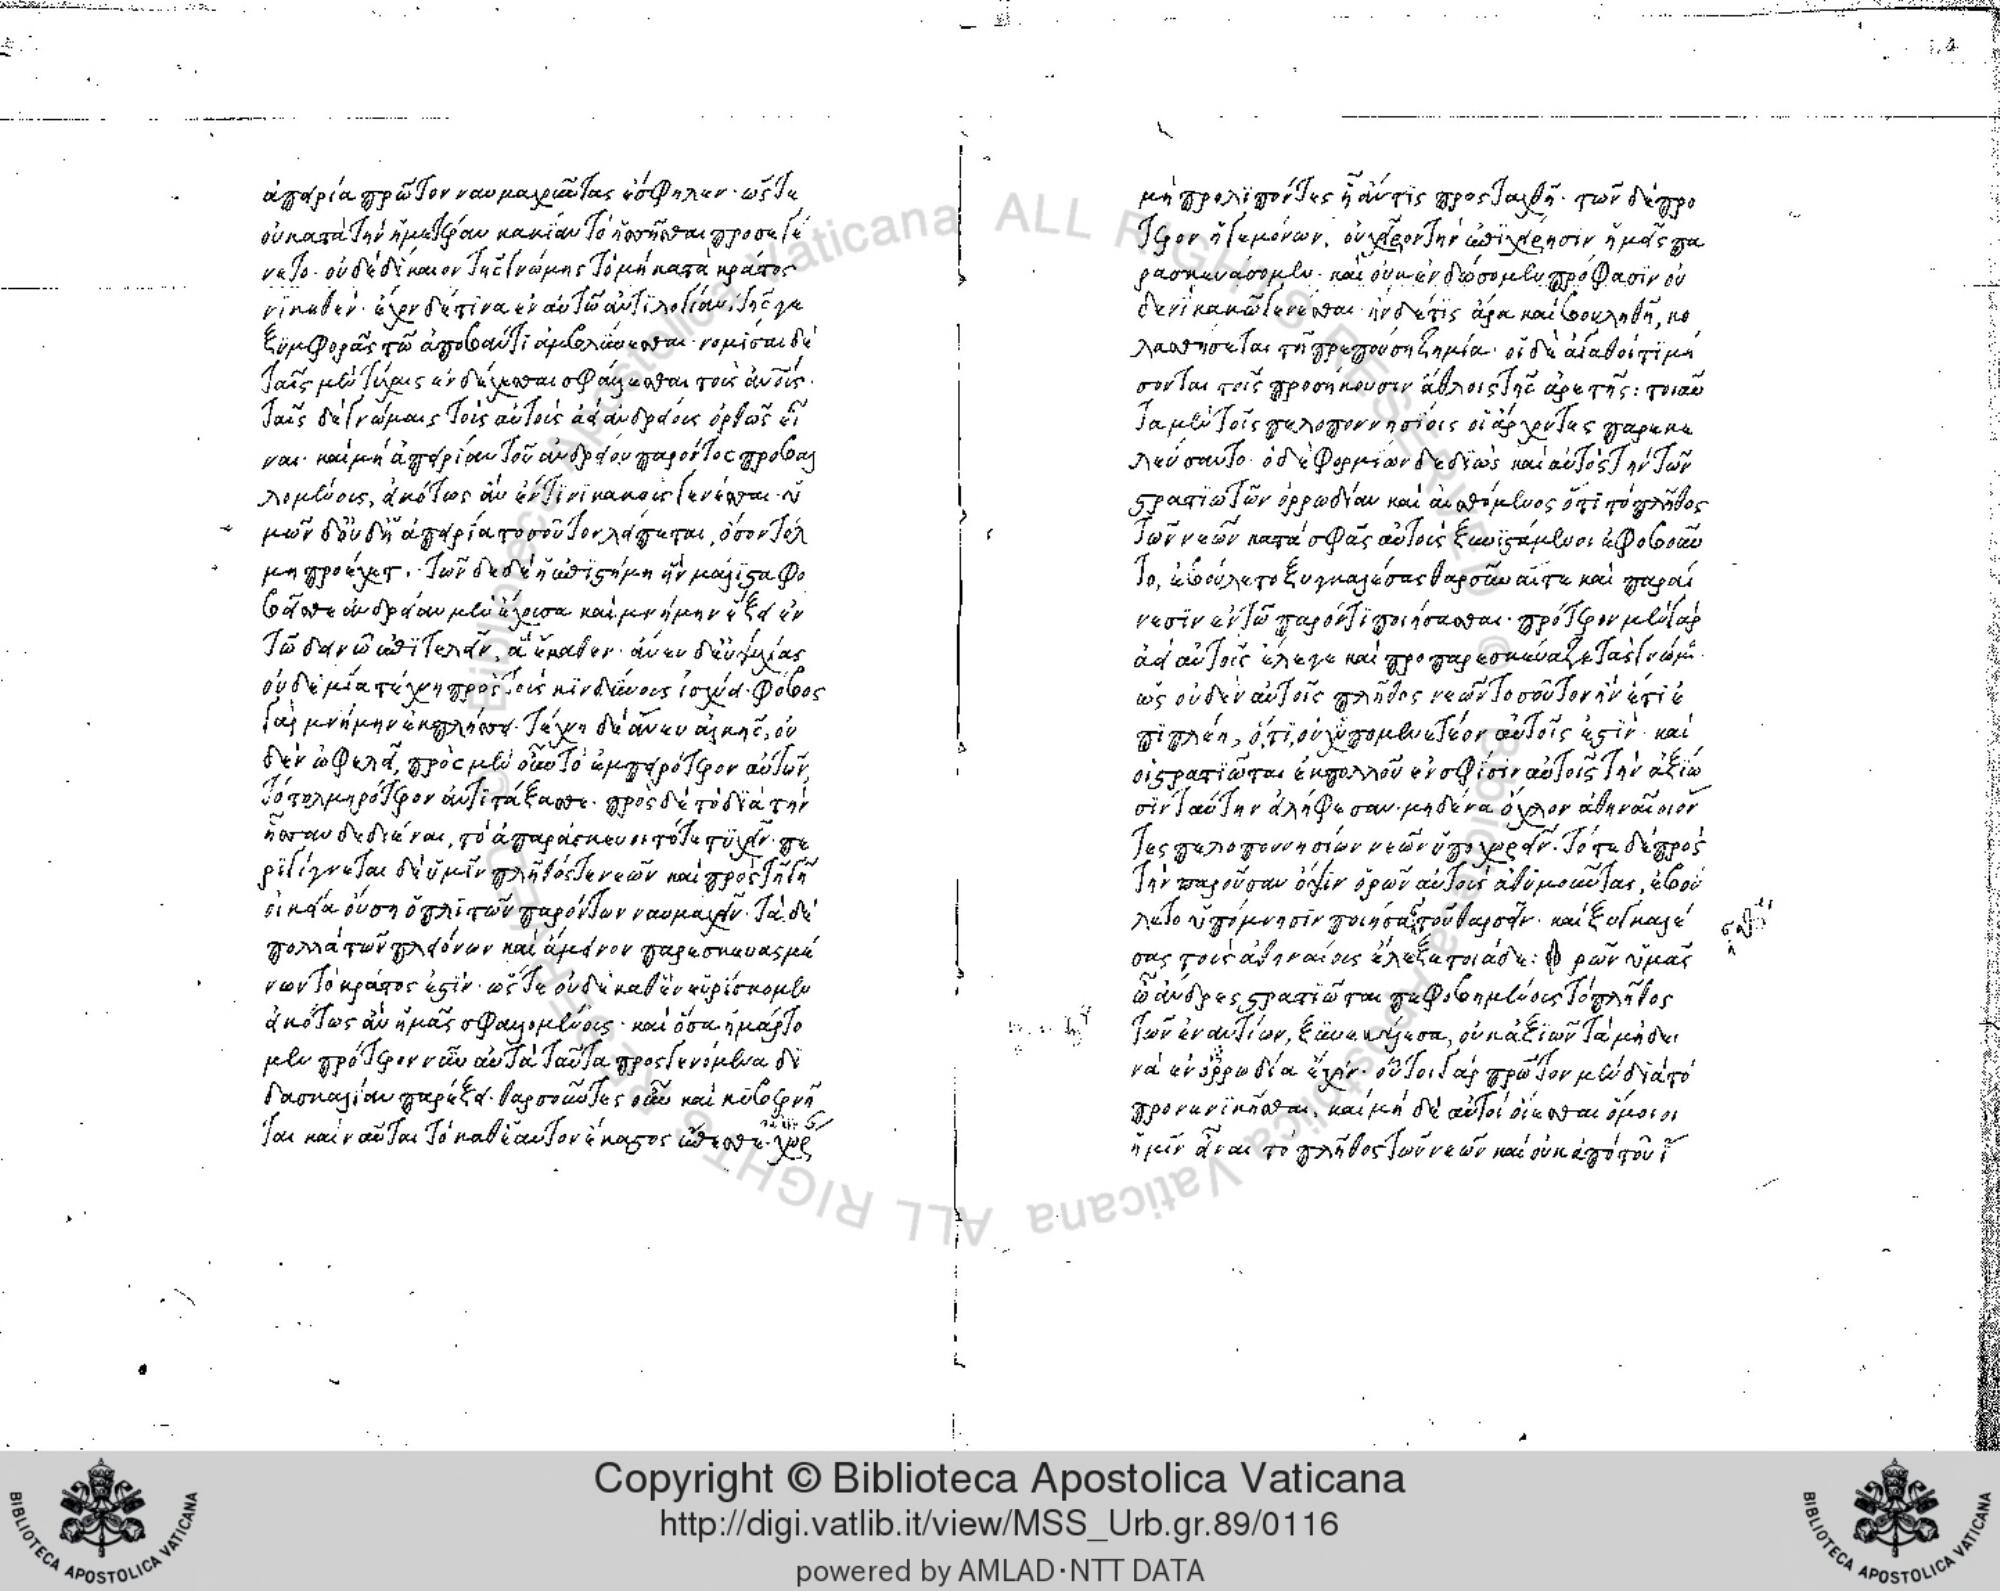 ἀπειρία πρῶτον ναυμαχοῦντας ἔσφηλεν· ὥστε
οὐ κατὰ τὴν ἡμετέραν κακίαν τὸ ἡσσῆσθαι προσεγέ
νετο· οὐδὲ δίκαιον τῆς γνώμης τὸ μὴ κατὰ κράτος
νικηθὲν· ἔχον δέ τινα ἐν αὑτῷ ἀντιλογίαν, τῆς γε
ξυμφορᾶς τῷ ἀποβάντι ἀμβλύνεσθαι· νομίσαι δὲ
ταῖς μὲν τύχαις ἐνδέχεσθαι σφάλλεσθαι τοὺς ἀν̅ο̅υς·
ταῖς δὲ γνώμαις τοὺς αὐτοὺς ἀεὶ ἀνδρείους ὀρθῶς εἶ
ναι· καὶ μὴ ἀπειρίαν τοῦ ἀνδρείου παρόντος προβαλ
λομένους, εἰκότως ἂν ἔν τινι κακοὺς γενέσθαι· ὑ
μῶν δ' οὐδ' ἡ ἀπειρία τοσοῦτον λείπεται, ὅσον τόλ
μῃ προέχετε· τῶν δὲ δὲ ἡ ἐπιστήμη ἣν μάλιστα φο
βεῖσθε ἀνδρείαν μὲν ἔχουσα καὶ μνήμην ἕξει ἐν
τῷ δεινῷ ἐπιτελεῖν, ἃ ἔμαθεν· ἄνευ δ' εὐψυχίας
οὐδεμία τέχνη πρὸς τοὺς κινδύνους ἰσχύει· φόβος
γὰρ μνήμην ἐκπλήσσει· τέχνη δὲ ἄνευ ἀλκῆς, οὐ
δὲν ὠφελεῖ, πρὸς μὲν οὖν τὸ ἐμπειρότερον αὐτῶν,
τὸ τολμηρότερον ἀντιτάξασθε· πρὸς δὲ τὸ διὰ τὴν
ἧσσαν δεδιέναι, τὸ ἀπαράσκευοι τότε τυχεῖν· πε
ριγίγνεται δὲ ὑμῖν πλῆθός τε νεῶν καὶ πρὸς τῇ γῇ
οἰκείᾳ οὔσῃ ὁπλιτῶν παρόντων ναυμαχεῖν· τὰ δὲ
πολλὰ τῶν πλειόνων καὶ ἄμεινον παρεσκευασμέ
νων τὸ κράτος ἐστίν· ὥστε οὐδὲ καθ' ἓν εὑρίσκομεν
εἰκότως ἂν ἡμᾶς σφαλλομένους· καὶ ὅσα ἡμάρτο
μεν πρότερον νῦν αὐτὰ ταῦτα προσγενόμενα δι
δασκαλίαν παρέξει· θαρσοῦντες οὖν καὶ κυβερνῆ
ται καὶ ναῦται τὸ καθ' ἑαυτὸν ἕκαστος ἕπεσθε· χώρ
μὴ προλιπόντες ᾗ ἄν τις προσταχθῇ· τῶν δὲ πρό
τερον ἡγεμόνων, οὐ χεῖρον τὴν ἐπιχείρησιν ἡμεῖς πα
ρασκευάσομεν· καὶ οὐκ ἐνδώσομεν πρόφασιν οὐ
δενὶ κακῷ γενέσθαι· ἢν δέ τις ἄρα καὶ βουληθῇ, κο
λασθήσεται τῇ πρεπούσῃ ζημίᾳ· οἱ δὲ ἀγαθοὶ τιμή
σονται τοῖς προσήκουσιν ἄθλοις τῆς ἀρετῆς: τοιαῦ
τα μὲν τοῖς πελοποννησίοις οἱ ἄρχοντες παρεκε
λεύσαντο· ὁ δὲ φορμίων δεδιὼς καὶ αὐτὸς τὴν τῶν
στρατιωτῶν ὀρρωδίαν καὶ αἰσθόμενος ὅτι τὸ πλῆθος
τῶν νεῶν κατὰ σφᾶς αὐτοὺς ξυνιστάμενοι ἐφοβοῦν
το, ἐβούλετο ξυγκαλέσας θαρσῦναί τε καὶ παραί
νεσιν ἐν τῷ παρόντι ποιήσασθαι· πρότερον μὲν γὰρ
ἀεὶ αὐτοῖς ἔλεγε καὶ προπαρεσκεύαζε τὰς γνώμ·
ὡς οὐδὲν αὐτοῖς πλῆθος νεῶν τοσοῦτον ἢν ἐπιέ
πιπλέῃ, ὅ,τι, οὐχ ὑπομενετέον αὐτοῖς ἐστίν· καὶ
οἱ στρατιῶται ἐκ πολλοῦ ἐν σφίσιν αὐτοῖς τὴν ἀξίω
σιν ταύτην εἰλήφεσαν· μηδένα ὄχλον ἀθηναῖοι ὄν
τες πελοποννησίων νεῶν ὑποχωρεῖν· τότε δὲ πρὸς
τὴν παροῦσαν ὄψιν ὁρῶν αὐτοὺς ἀθυμοῦντας, ἐβού
λετο ὑπόμνησιν ποιήσασθαι τοῦ θαρσεῖν· καὶ ξυγκαλέ
σας τοὺς ἀθηναίους ἔλεξε τοιάδε: Ὁρῶν ὑμᾶς
ὦ ἄνδρες στρατιῶται πεφοβημένους τὸ πλῆθος
τῶν ἐναντίων, ξυνεκάλεσα, οὐκ ἀξιῶν τὰ μὴ δει
νὰ ἐν ὀρρωδίᾳ ἔχειν· οὗτοι γὰρ πρῶτον μὲν διὰ τὸ
προνενικῆσθαι, καὶ μὴ δὲ αὐτοὶ οἴεσθαι ὅμοιοι
ἡμῖν εἶναι τὸ πλῆθος τῶν νεῶν καὶ οὐκ ἀπὸ τοῦ ἴ
Copyright © Biblioteca Apostolica Vaticana
http://digi.vatlib.it/view/MSS_Urb.gr.89/0116
powered by AMLAD·NTT DATA
BIBLIOTECA APOSTOLICA VATICANA
BIBLIOTECA APOSTOLICA VATICANA